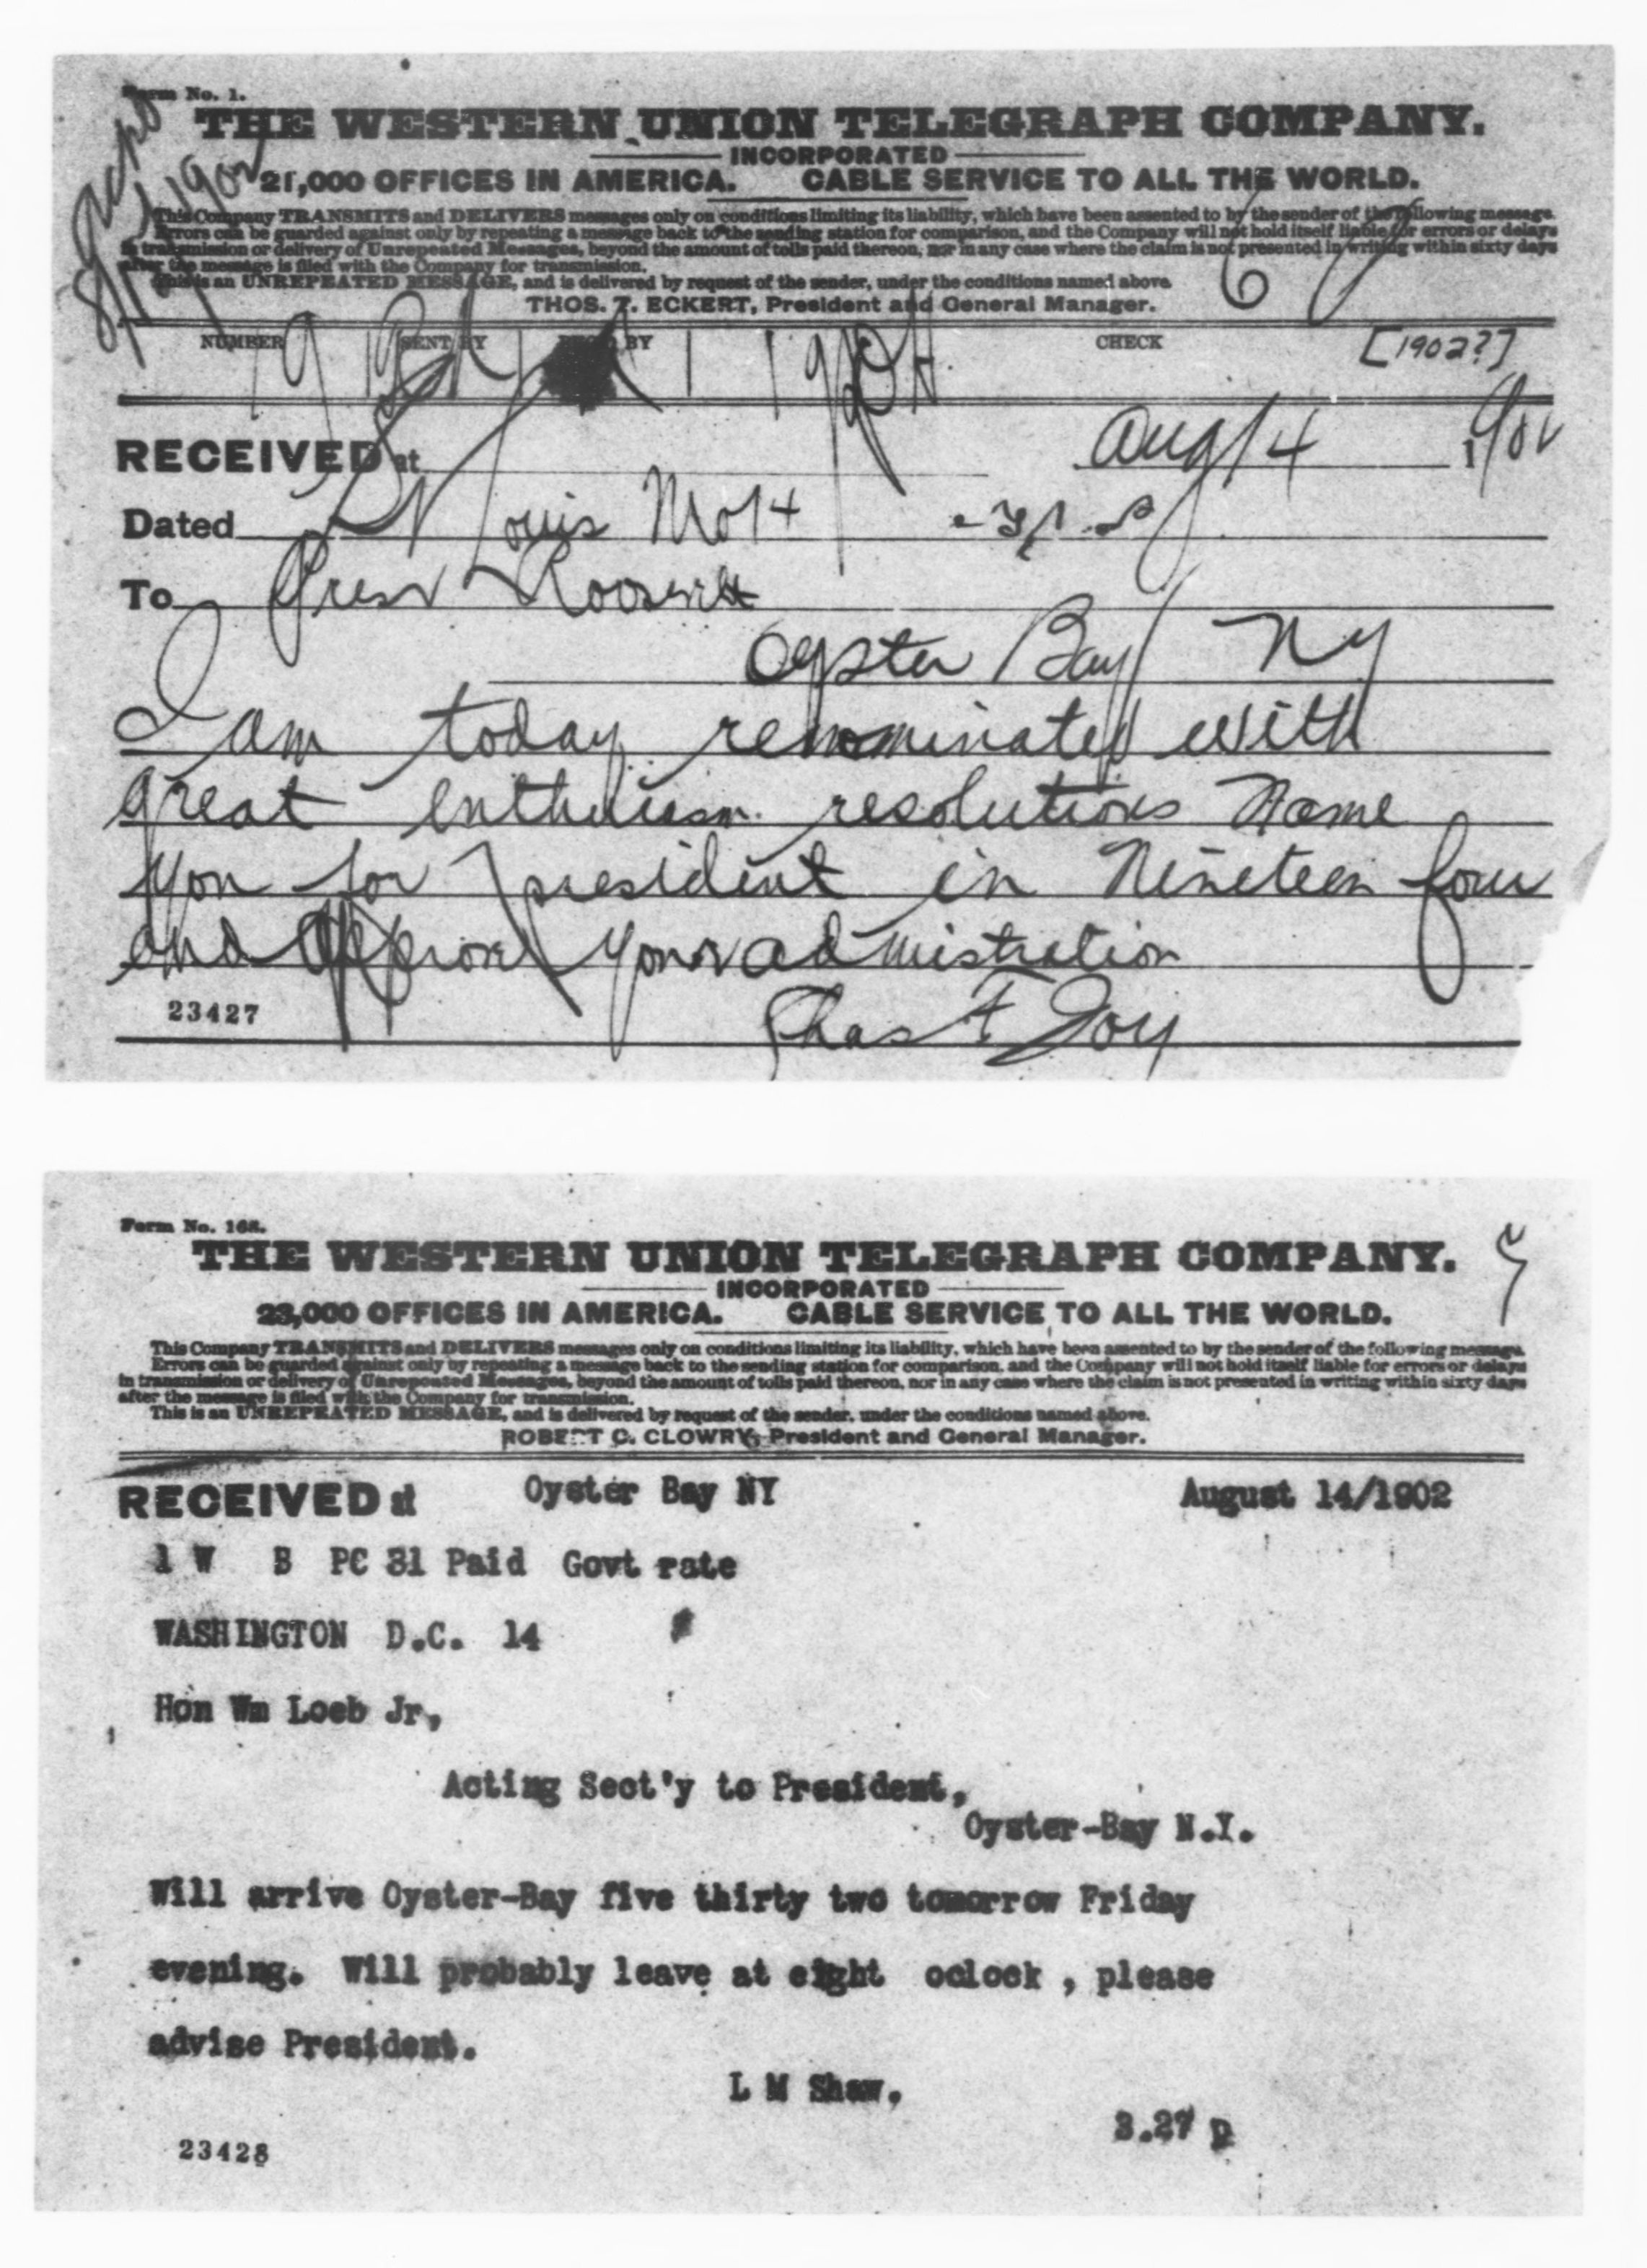 Form No. 1.
THE WESTERN UNION TELEGRAPH COMPANY.
INCORPORATED
21,000 OFFICES IN AMERICA. CABLE SERVICE TO ALL THE WORLD.
This Company TRANSMITS and DELIVERS messages only on conditions limiting its liability, which have been assented to by the sender of the following message.
Errors can be guarded against only by repeating a message back to the sending station for comparison, and the Company will not hold itself liable for errors or delays
in transmission or delivery of Unrepeated Messages, beyond the amount of tolls paid thereon, nor in any case where the claim is not presented in writing within sixty days
after the message is filed with the Company for transmission.
This is an UNREPEATED MESSAGE, and is delivered by request of the sender, under the conditions named above.
THOS. T. ECKERT, President and General Manager.
NUMBER SENT BY REC'D BY CHECK
[1902?]
RECEIVED at Aug 14 1902
Dated St Louis Mo 14
To Prest Roosevelt
Oyster Bay NY
I am today renominated with
great enthusiasm resolutions name
you for president in Nineteen four
and approve your admistration
Chas F Joy
23427
Form No. 168.
THE WESTERN UNION TELEGRAPH COMPANY.
INCORPORATED
23,000 OFFICES IN AMERICA. CABLE SERVICE TO ALL THE WORLD.
This Company TRANSMITS and DELIVERS messages only on conditions limiting its liability, which have been assented to by the sender of the following message.
Errors can be guarded against only by repeating a message back to the sending station for comparison, and the Company will not hold itself liable for errors or delays
in transmission or delivery of Unrepeated Messages, beyond the amount of tolls paid thereon, nor in any case where the claim is not presented in writing within sixty days
after the message is filed with the Company for transmission.
This is an UNREPEATED MESSAGE, and is delivered by request of the sender, under the conditions named above.
ROBERT C. CLOWRY, President and General Manager.
RECEIVED at Oyster Bay NY August 14/1902
1 W B PC 31 Paid Govt rate
WASHINGTON D.C. 14
Hon Wm Loeb Jr,
Acting Sect'y to President,
Oyster-Bay N.Y.
Will arrive Oyster-Bay five thirty two tomorrow Friday
evening. Will probably leave at eight oclock , please
advise President.
L M Shaw.
3.27 p
23428